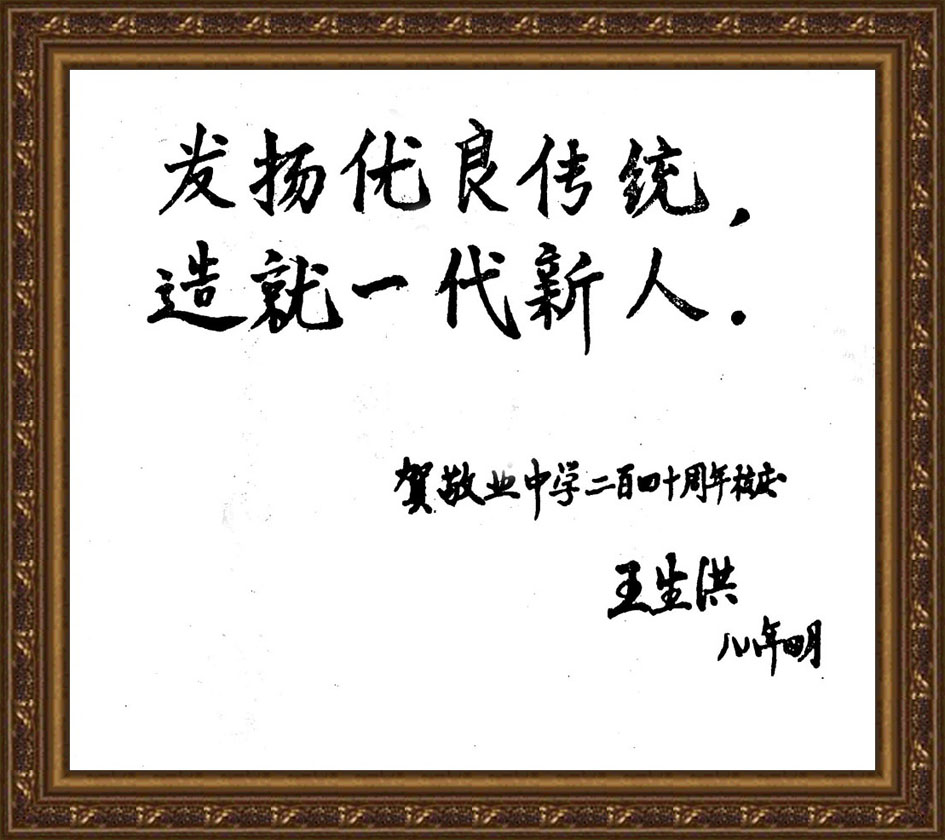 发扬优良传统，
造就一代新人．
贺敬业中学二百四十周年校庆
王生洪
八八年四月